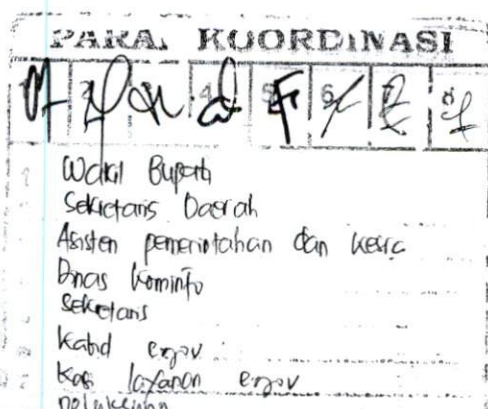 PARA. KOORDINASI
4 5 6 7 8
Wakil Bupati
Sekretaris Daerah
Asisten pemerintahan dan kesra
Dinas Kominfo
Sekretaris
Kabid egov
Kasi layanan egov